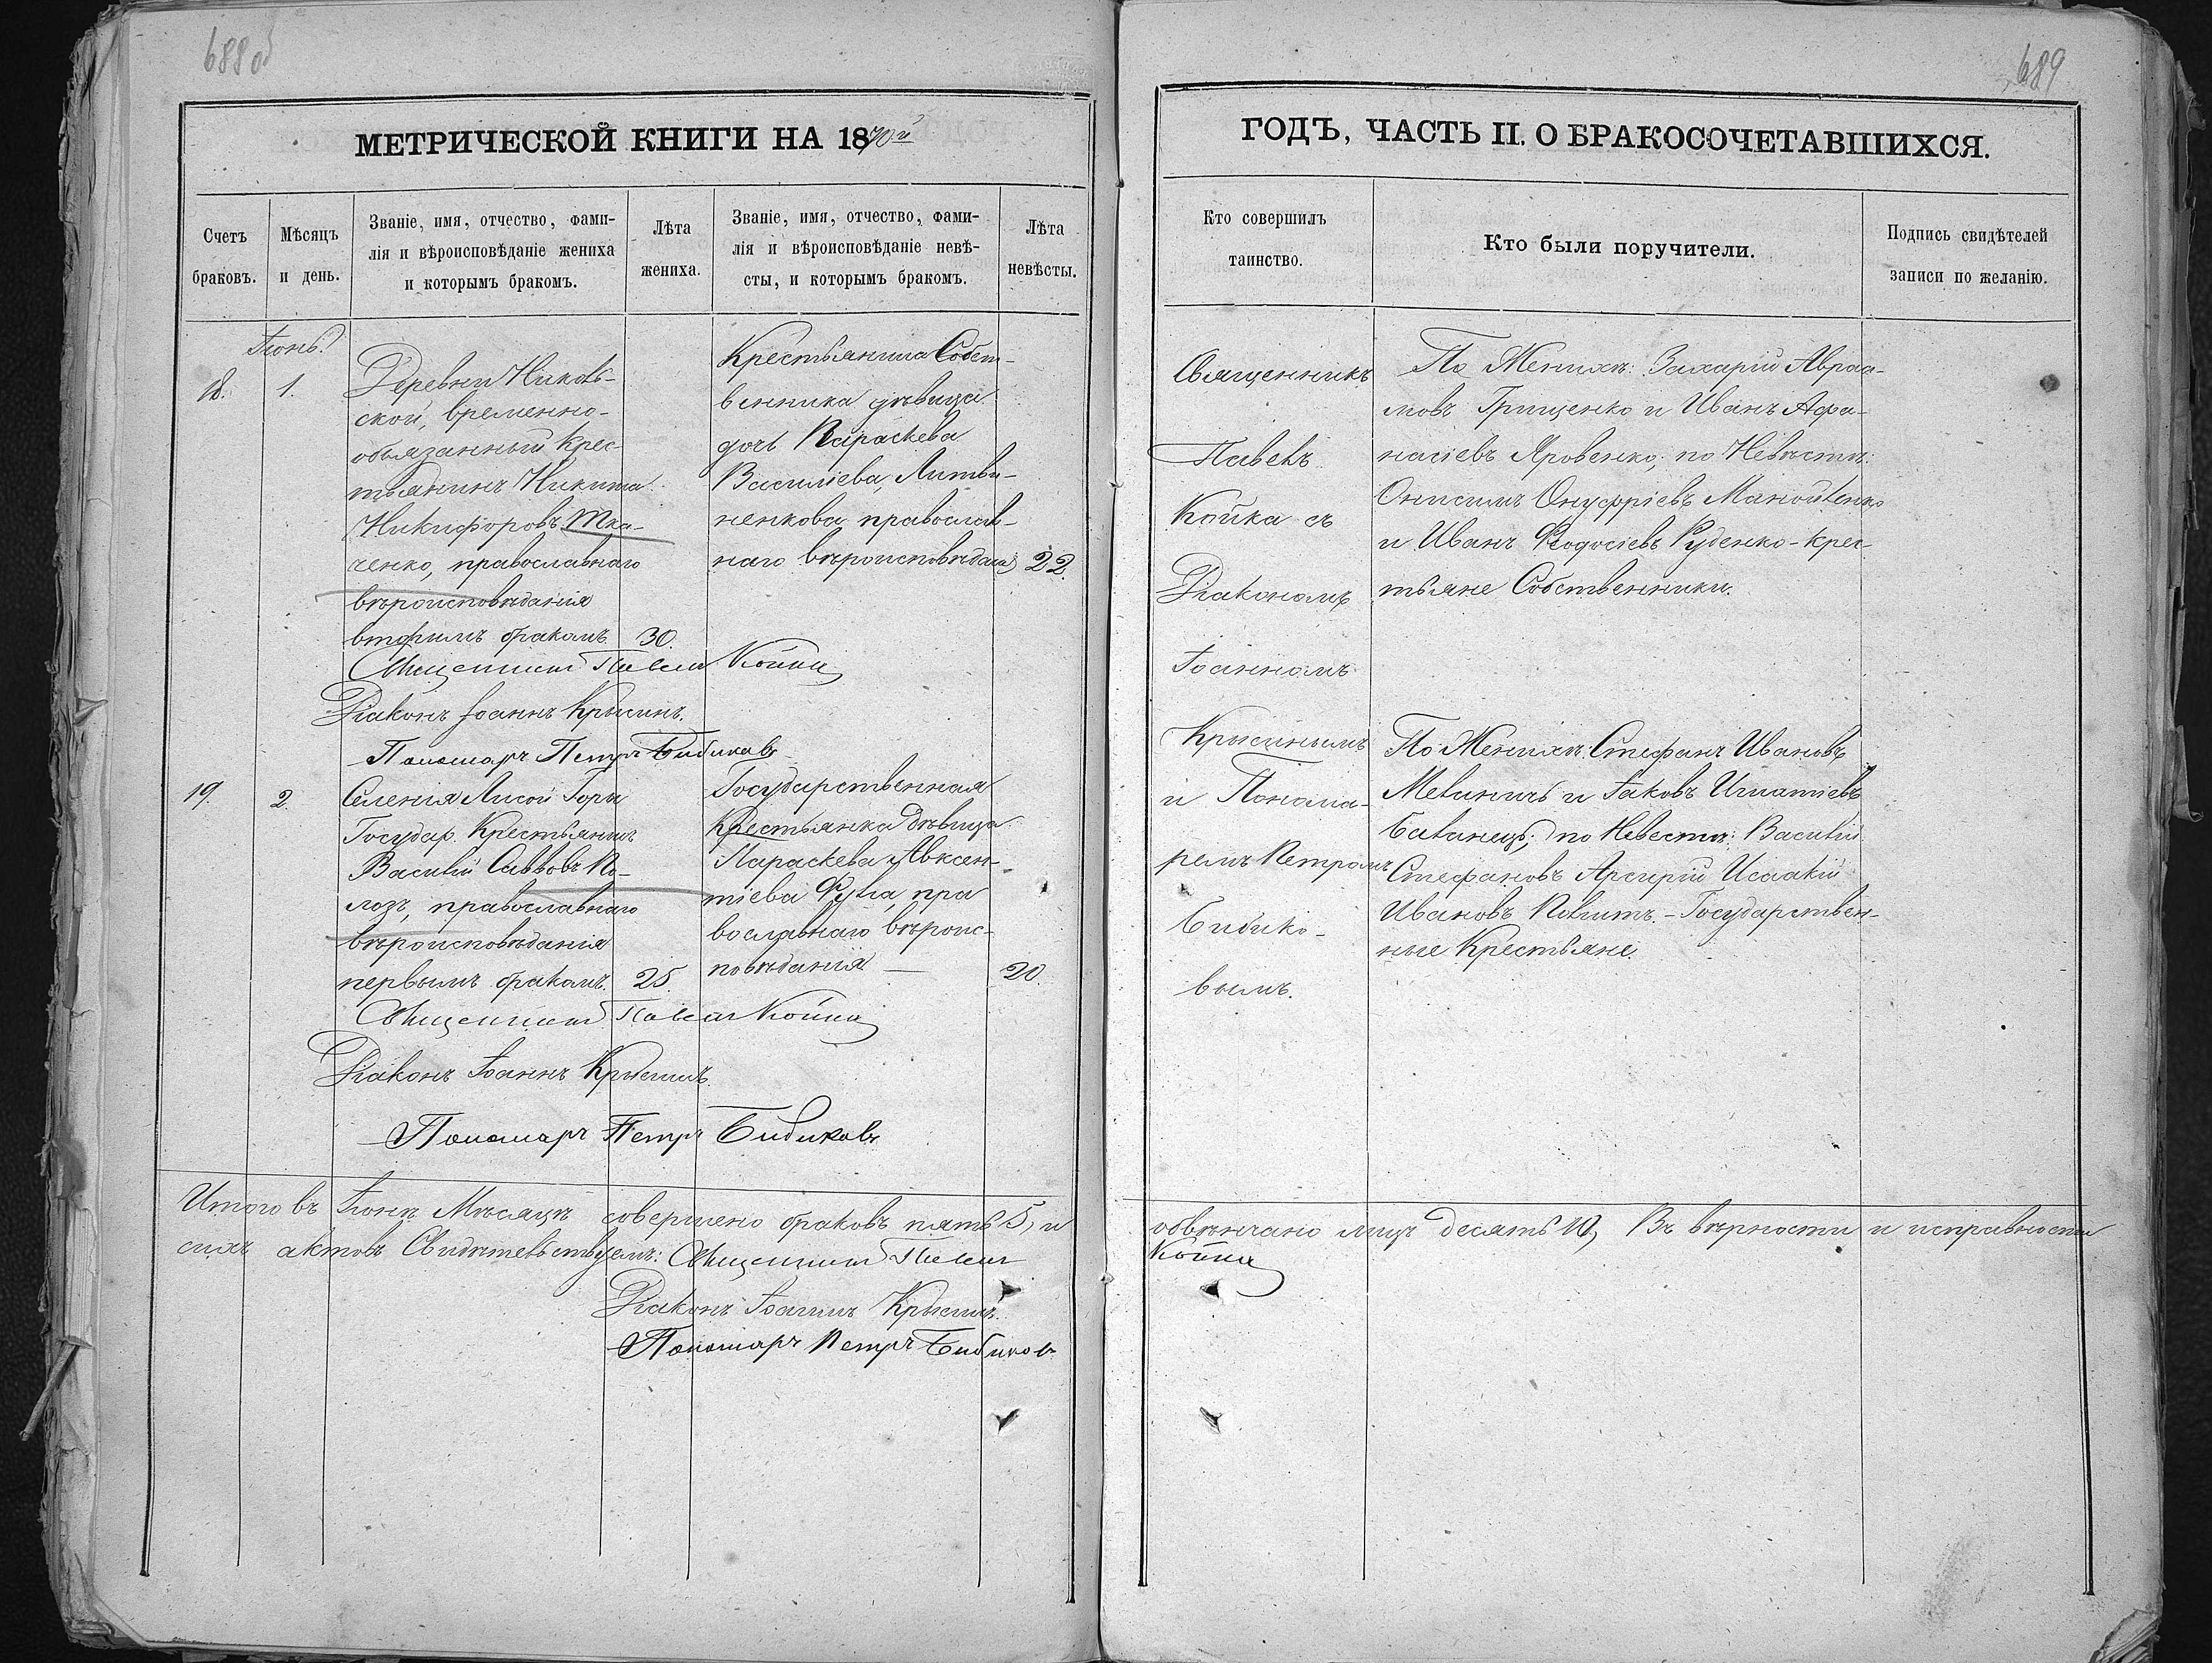 688 об
689
МЕТРИЧЕСКОЙ КНИГИ НА 1870й
ГОДЪ, ЧАСТЬ II. О БРАКОСОЧЕТАВШИХСЯ.
Счетъ
браковъ.
Мѣсяцъ
и день.
Званіе, имя, отчество, фами-
лія и вѣроисповѣданіе жениха
и которымъ бракомъ.
Лѣта
жениха.
Званіе, имя, отчество, фами-
лія и вѣроисповѣданіе невѣ-
сты, и которымъ бракомъ.
Лѣта
невѣсты.
Кто совершилъ
таинство.
Кто были поручители.
Подпись свидѣтелей
записи по желанію.
Іюнь.
18.
1.
Деревни Николь-
ской, временно-
обязанный крес-
тьянинъ Никита
Никифоровъ Тка-
ченко, православнаго
вѣроисповѣданія
вторымъ бракомъ.
30.
Крестьянина Собст-
венника дѣвица
дочь Параскева
Василіева, Литви-
ненкова православ-
наго вѣроисповѣданія
22.
Священникъ Павелъ Койка
Діаконъ Іоаннъ Крысинъ.
Пономарь Петръ Бибиковъ
19.
2.
Селенія Лисой Горы
Государ. Крестьянинъ
Василій Саввовъ По-
лозъ, православнаго
вѣроисповѣданія
первымъ бракомъ.
25.
Государственная
Крестьянка Дѣвица
Параскева Авксен-
тіева Фука, пра
вославнаго вѣроис-
повѣданія
20.
Священникъ Павелъ Койка
Діаконъ Іоаннъ Крысинъ.
Пономарь Петръ Бибиковъ
Итого въ Іюнѣ Мѣсяцѣ совершено браковъ пять 5, и
сихъ актовъ Свидѣтельствуемъ: Священникъ Павелъ
Діаконъ Іоаннъ Крысинъ.
Пономарь Петръ Бибиковъ
Священникъ
Павелъ
Койка съ
Діакономъ
Іоанномъ
Крысинымъ
и Понома-
ремъ Петромъ
Бибико-
вымъ.
По Женихѣ: Захарій Авраа-
мовъ Грищенко и Иванъ Афа-
насіевъ Яровенко; по Невѣстѣ:
Онисимъ Онуфріевъ Манойленко
и Иванъ Феодосіевъ Руденко - крес-
тьяне Собственники.
По Женихѣ: Стефанъ Ивановъ
и Іаковъ Игнатіевъ
Баланецъ; по Невестѣ: Василій
Стефановъ Исаакій
Ивановъ - Государствен-
ные Крестьяне.
обвѣнчано лицъ десять 10, Въ вѣрности и исправности
Койка